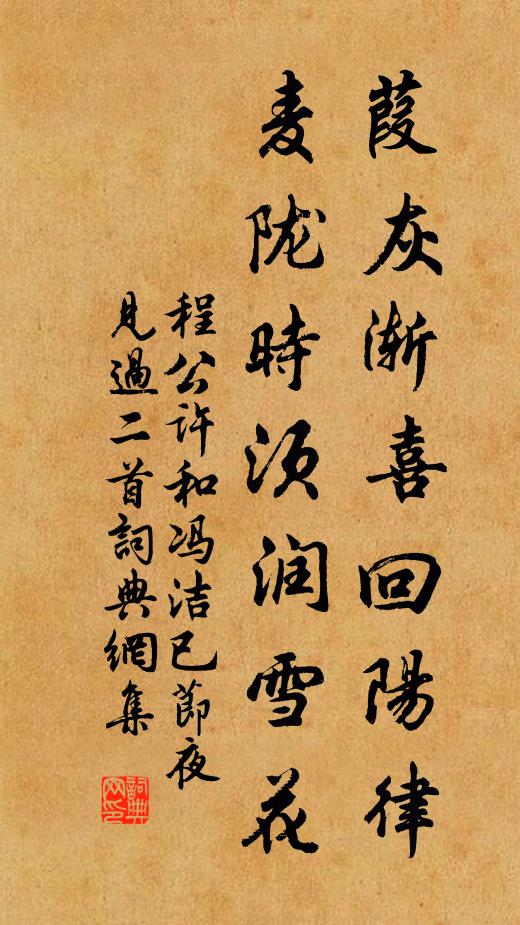 葭灰渐喜回陽律
麦陇時须润雪花
程公许和冯洁已節夜
見過二首詞典網集
詞典
网印